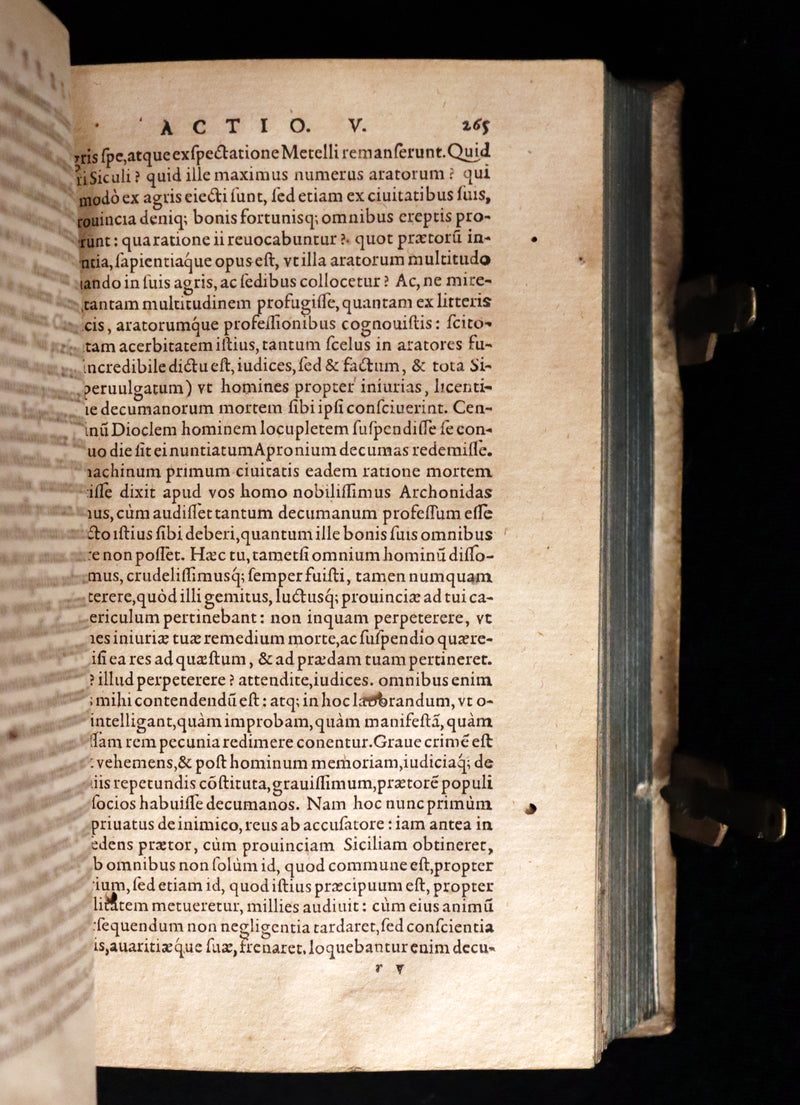 ACTIO. V. 265
ris ſpe,atque exſpectatione Metelli remanſerunt. Quid
Siculi? quid ille maximus numerus aratorum? qui
modò ex agris eiecti ſunt, ſed etiam ex ciuitatibus ſuis,
rouincia deniq; bonis fortunisq; omnibus ereptis pro-
runt: qua ratione ii reuocabuntur? quot prætorũ in-
ntia, ſapientiaq́ue opus eſt, vt illa aratorum multitudo
ando in ſuis agris, ac ſedibus collocetur? Ac, ne mire-
tantam multitudinem profugiſſe, quantam ex litteris
cis, aratorumq́ue profeſſionibus cognouiſtis: ſcito-
tam acerbitatem iſtius, tantum ſcelus in aratores fu-
incredibile dictu eſt, iudices, ſed & factum, & tota Si-
peruulgatum) vt homines propter iniurias, licenti-
ie decumanorum mortem ſibi ipſi conſciuerint. Cen-
inũ Dioclem hominem locupletem ſuſpendiſſe ſe con-
uo die ſit ei nuntiatum Apronium decumas redemiſſe.
achinum primum ciuitatis eadem ratione mortem
iſſe dixit apud vos homo nobiliſſimus Archonidas
ius, cùm audiſſet tantum decumanum profeſſum eſſe
cto iſtius ſibi deberi, quantum ille bonis ſuis omnibus
re non poſſet. Hæc tu, tametſi omnium hominũ diſſo-
mus, crudeliſſimusq́; ſemper fuiſti, tamen numquam
terere, quòd illi gemitus, luctusq́; prouinciæ ad tui ca-
ericulum pertinebant: non inquam perpeterere, vt
nes iniuriæ tuæ remedium morte, ac ſuſpendio quære-
iſi ea res ad quæſtum, & ad prædam tuam pertineret.
? illud perpeterere? attendite, iudices. omnibus enim
mihi contendendũ eſt: atq; in hoc laborandum, vt o-
intelligant, quàm improbam, quàm manifeſtã, quàm
ſſam rem pecunia redimere conentur. Graue crimẽ eſt
vehemens, & poſt hominum memoriam, iudiciaq́; de
iis repetundis cõſtituta, grauiſſimum, prætorẽ populi
ſocios habuiſſe decumanos. Nam hoc nunc primùm
priuatus de inimico, reus ab accuſatore: iam antea in
edens prætor, cùm prouinciam Siciliam obtineret,
b omnibus non ſolùm id, quod commune eſt, propter
ium, ſed etiam id, quod iſtius præcipuum eſt, propter
litatem metueretur, millies audiuit: cùm eius animũ
ſequendum non negligentia tardaret, ſed conſcientia
is, auaritiæq́ue ſuæ, frenaret. loquebantur enim decu-
r v